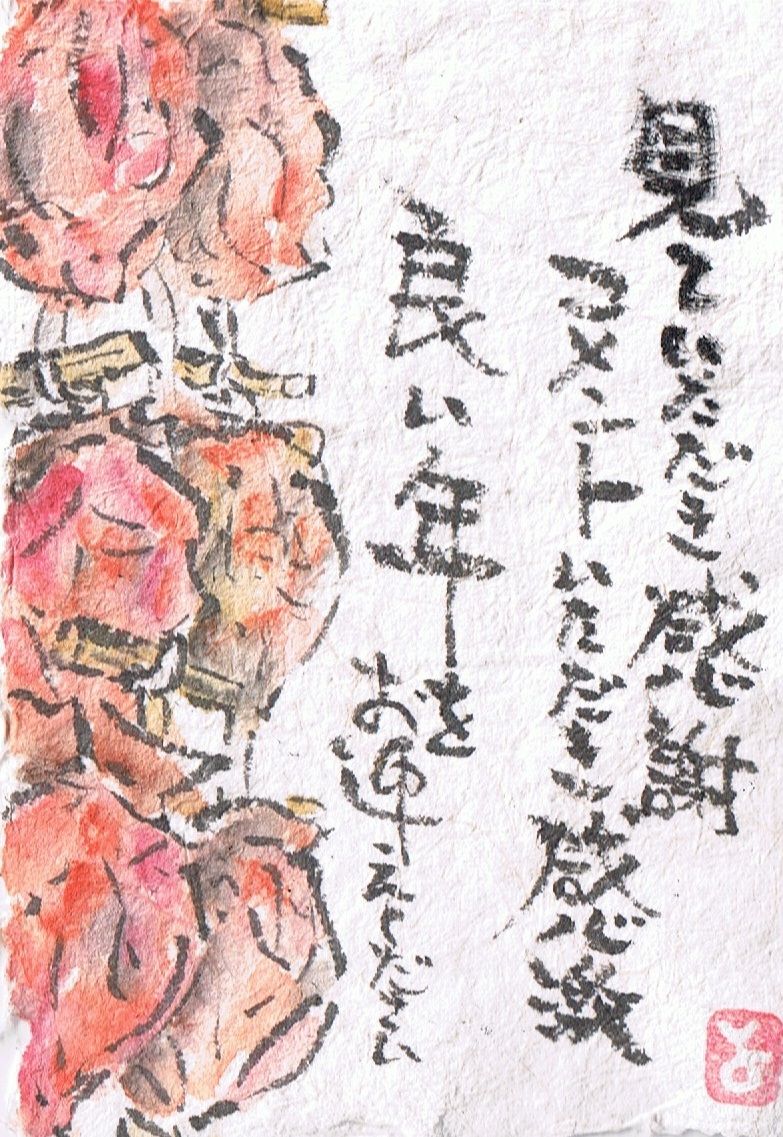 見ていただき感謝
コメントいただき感激
良い年をお迎えください
と